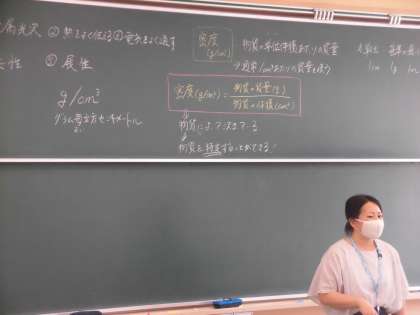 属光沢 ②熱をよく伝える③電気をよく通す
③展性
g/cm³
グラム毎立方センチメートル
密度
(g/cm³)
物質の単位体積あたりの質量
通常1cm³あたりの質量を使う
密度(g/cm³)=物質の質量(g)/物質の体積(cm³)
物質によって決まっている
物質を特定することができる!
1cm